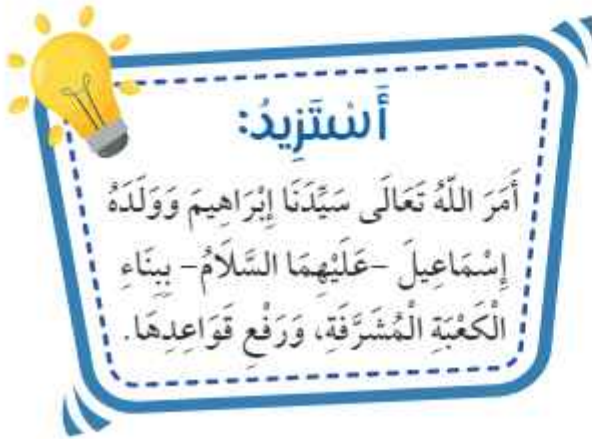 أَسْتَزِيدُ:
أَمَرَ اللَّهُ تَعَالَى سَيِّدَنَا إِبْرَاهِيمَ وَوَلَدَهُ
إِسْمَاعِيلَ -عَلَيْهِمَا السَّلَامُ- بِبِنَاءِ
الْكَعْبَةِ الْمُشَرَّفَةِ، وَرَفْعِ قَوَاعِدِهَا.